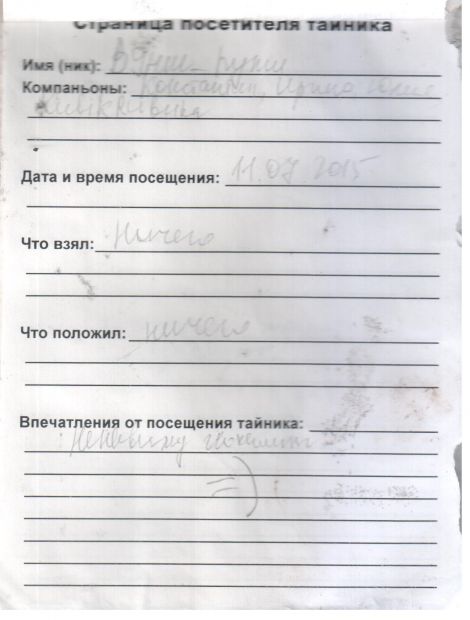 Страница посетителя тайника
Имя (ник):
Компаньоны: Константин, Ирина Юлия
Дата и время посещения: 11.07.2015
Что взял: Ничего
Что положил: ничего
Впечатления от посещения тайника:
Ненавижу
=)